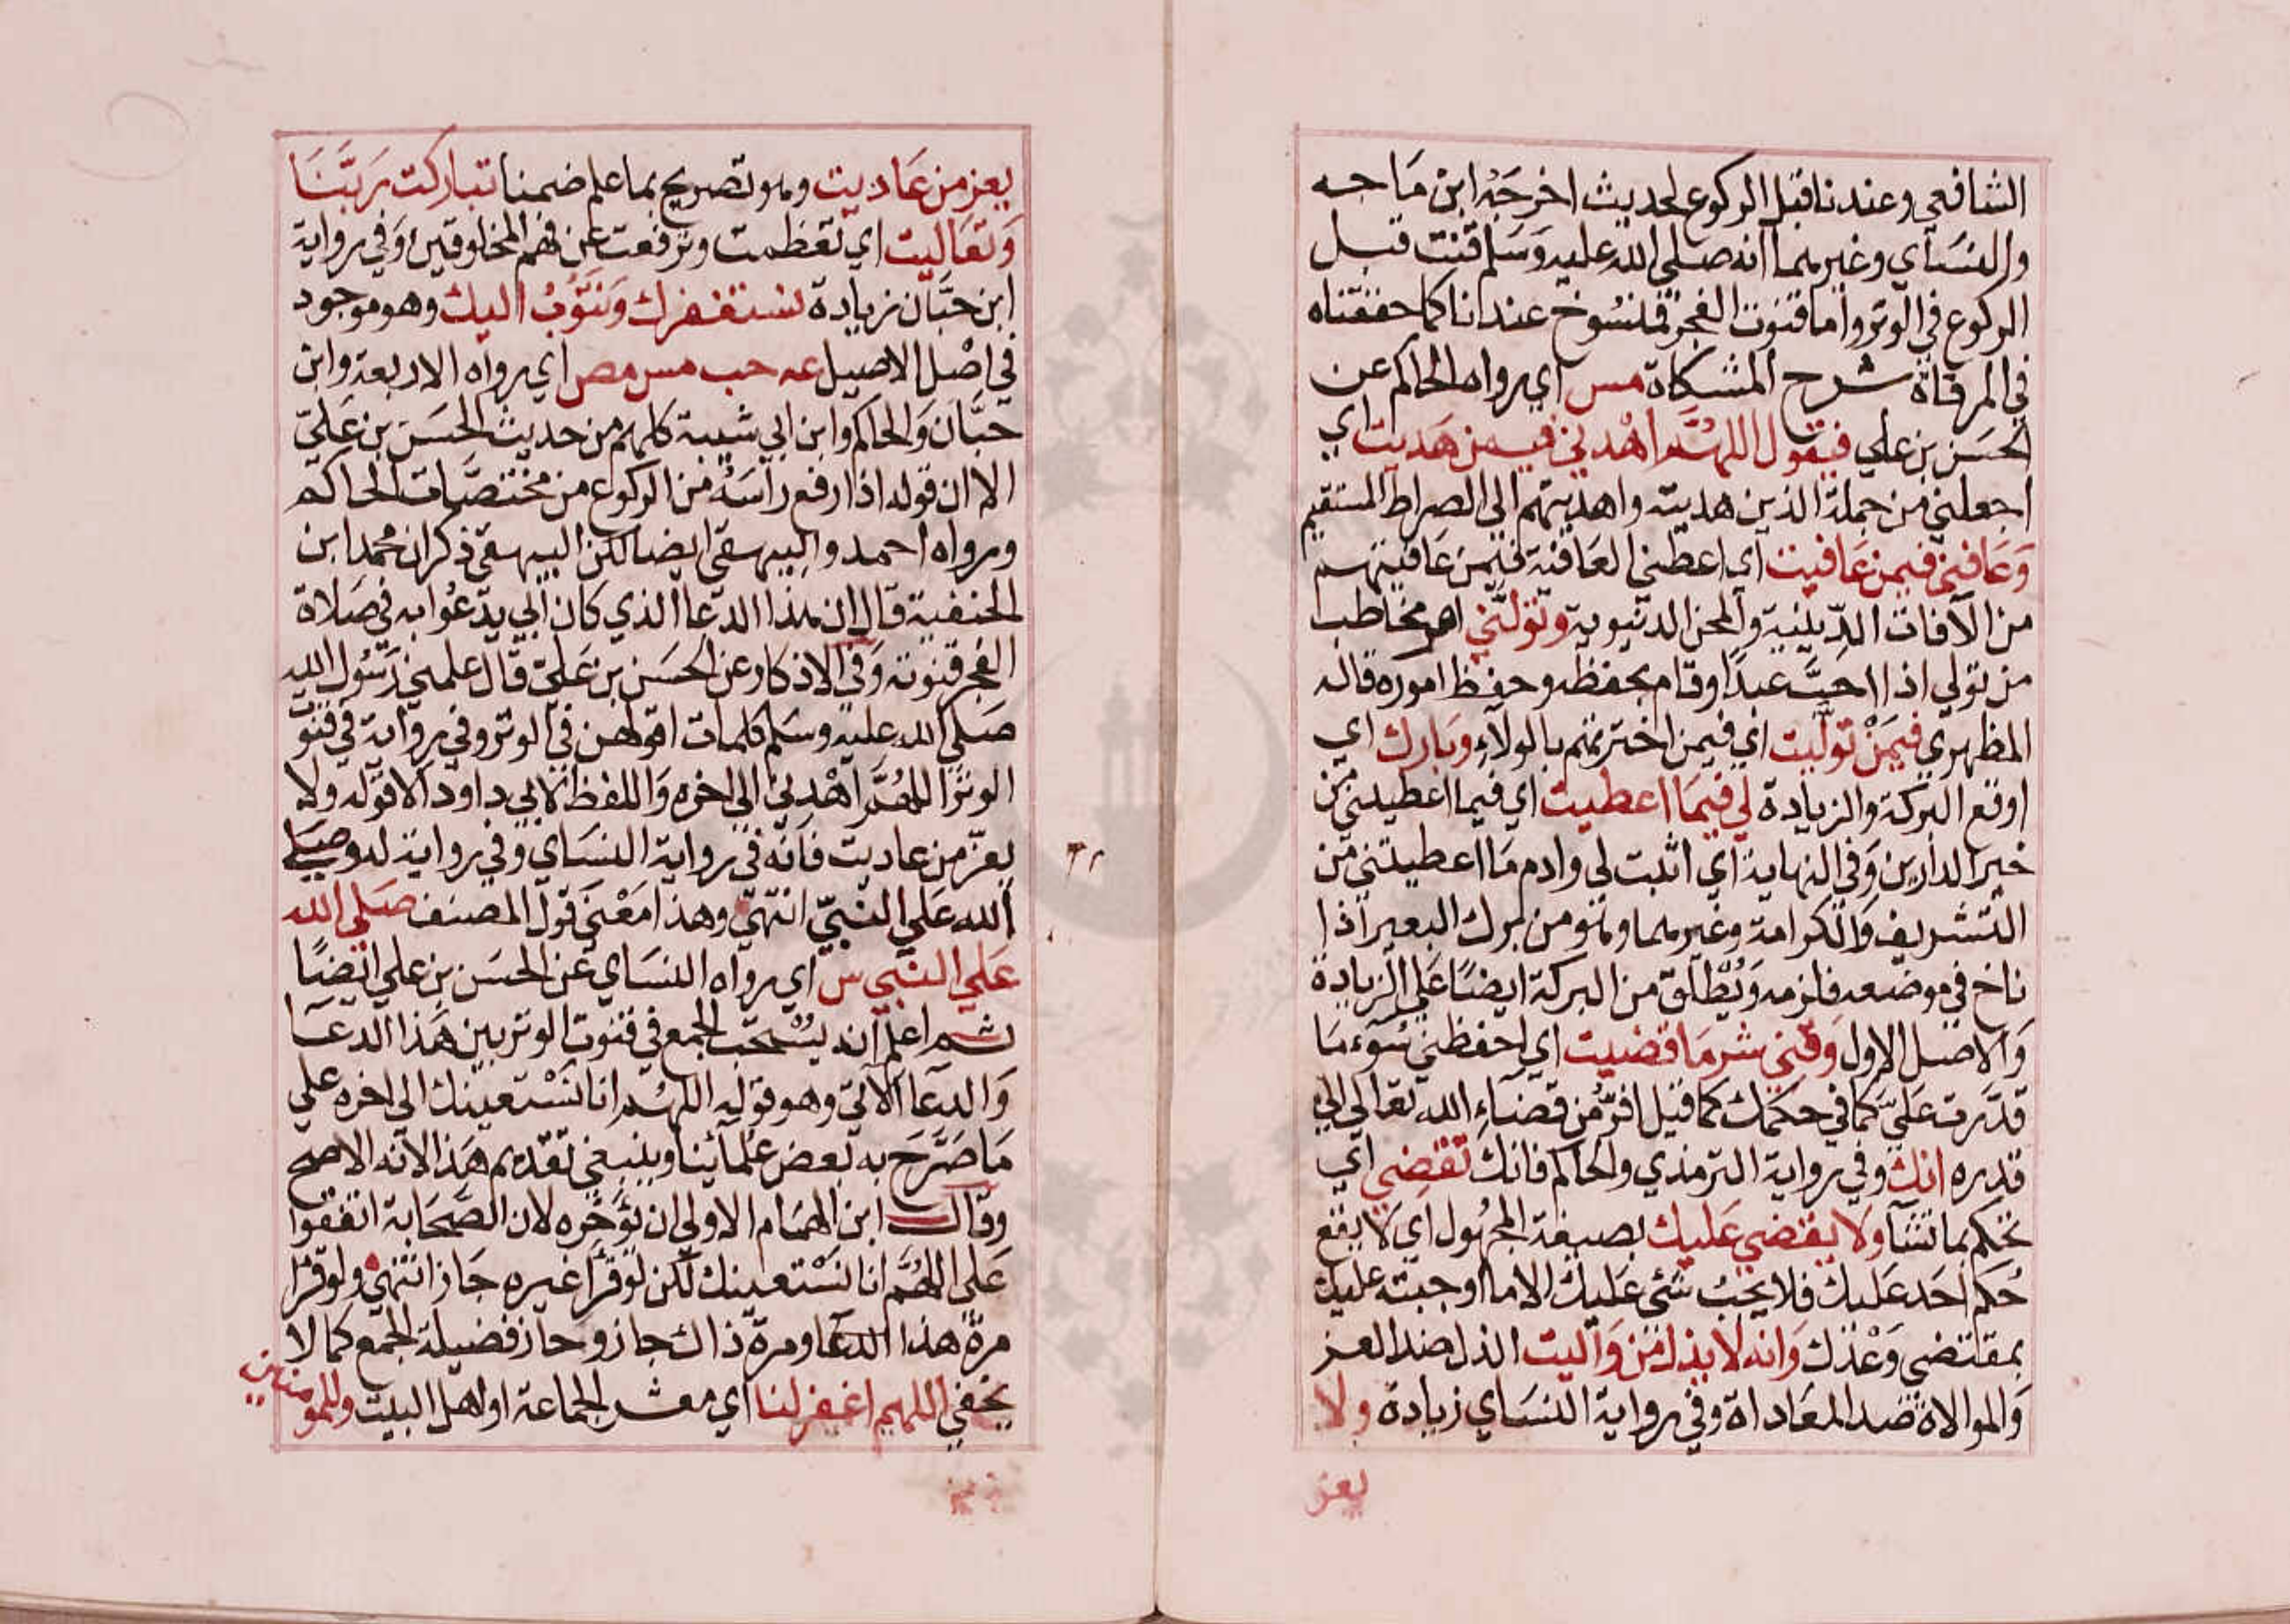 الشافعي وعندنا قبل الركوع لحديث اخرجه ابن ماجه
والنسآي وغيرهما انه صلى الله عليه وسلم قنت قبل
الركوع في الوتر واما قنوت الفجر فمنسوخ عندنا كما حققناه
في المرقاة شرح المشكاة مس اي رواه الحاكم عن
الحسن بن علي فيقول اللهم اهدني فيمن هديت اي
اجعلني من جملة الذين هديته واهديتهم الى الصراط المستقيم
وعافني فيمن عافيت اي اعطني العافية فيمن عافيتهم
من الآفات الدينية والمحن الدنيوية وتولني امر مخاطب
من تولي اذا احب عبدا وقام بحفظه وحفظ اموره قاله
المظهري فيمن توليت اي فيمن اخترتهم بالولاء وبارك اي
اوقع البركة والزيادة لي فيما اعطيت اي فيما اعطيتني من
خير الدارين وفي النهاية اي اثبت لي وادم ما اعطيتني من
التشريف والكرامة وغيرهما وهو من برك البعير اذا
ناخ في موضعه فلزمه ويطلق من البركة ايضا على الزيادة
والاصل الاول وقني شر ما قضيت اي احفظني سوء ما
قدرت علي كما في حكمك كما قيل افر من قضاء الله تعالى الى
قدره انك وفي رواية الترمذي والحاكم فانك تقضي اي
تحكم بما تشآ ولا يقضي عليك بصيغة المجهول اي لا يقع
حكم احد عليك فلا يجب شئ عليك الا ما اوجبته عليك
بمقتضي وعدك وانه لا يذل من واليت الذل ضد العز
والموالاة ضد المعاداة وفي رواية النسآي زيادة ولا
يعز
يعز من عاديت وهو تصريح بما علم ضمنا تباركت ربنا
وتعاليت اي تعظمت وترفعت عن فهم المخلوقين وفي رواية
ابن حبان زيادة نستغفرك ونتوب اليك وهو موجود
في اصل الاصيل عه حب مس مص اي رواه الاربعة وابن
حبان والحاكم وابن ابي شيبة كلهم من حديث الحسن بن علي
الا ان قوله اذا رفع رأسه من الركوع من مختصات الحاكم
ورواه احمد والبيهقي ايضا لكن البيهقي ذكر ان محمد ابن
الحنفية قال ان هذا الدعا الذي كان ابي يدعوا به في صلاة
الفجر قنوته وفي الاذكار وعن الحسن بن علي قال علمني رسول الله
صلى الله عليه وسلم كلمات اقولهن في الوتر وفي رواية في قنوت
الوتر اللهم اهدني الى اخره واللفظ لابي داود الا قوله ولا
يعز من عاديت فانه في رواية النسآي وفي رواية له وصلى
الله على النبي انتهى وهذا معنى قول المصنف صلى الله
على النبي س اي رواه النسآي عن الحسن بن علي ايضا
ثم اعلم انه يستحب الجمع في قنوت الوتر بين هذا الدعآ
والدعآ الآتي وهو قوله اللهم انا نستعينك الى اخره على
ما صرح به بعض علمائنا وينبغي تقديم هذا لانه الاصح
وقال ابن الهمام الاولى ان يؤخره لان الصحابة اتفقوا
على اللهم انا نستعينك لكن لو قرأ غيره جاز انتهى ولو قرأ
مرة هذا الدعا ومرة ذاك جاز وحاز فضيلة الجمع كما لا
يخفي اللهم اغفر لنا اي معشر الجماعة او اهل البيت وللمومنين